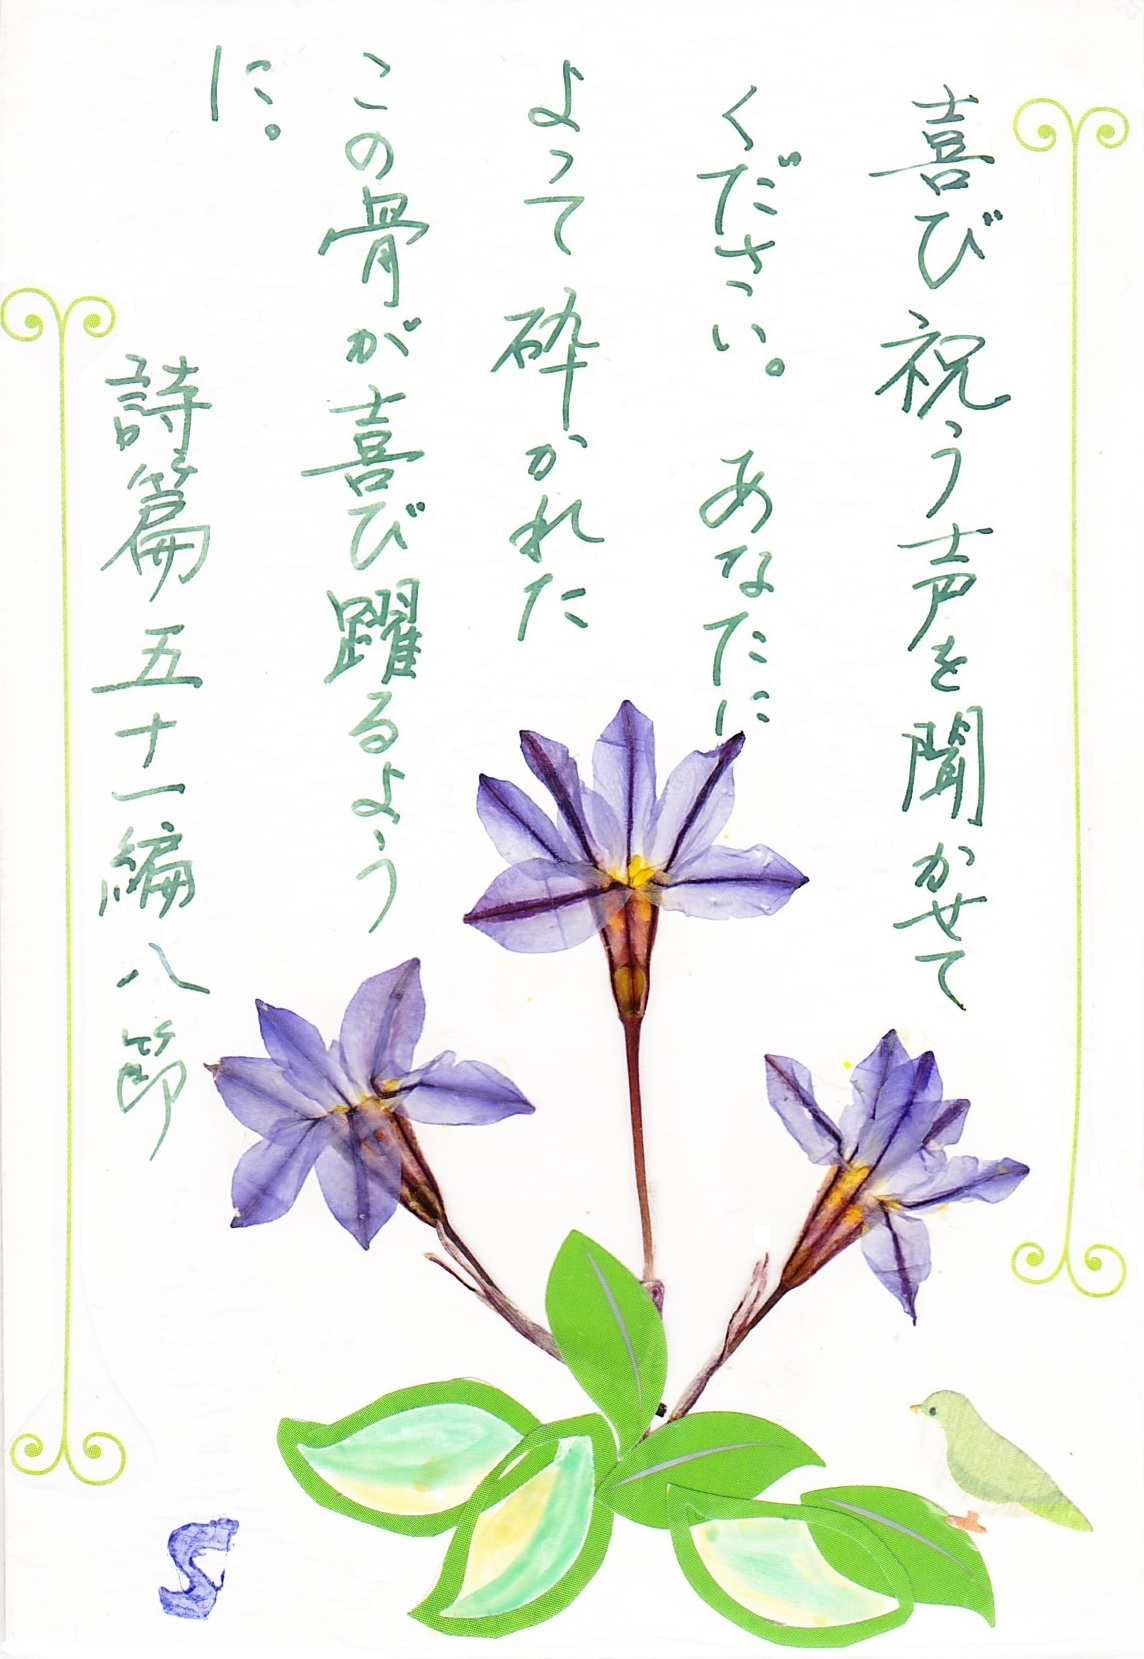 喜び祝う声を聞かせて
ください。あなたに
よって砕かれた
この骨が喜び躍るよう
に。
詩篇五十一編八節
S